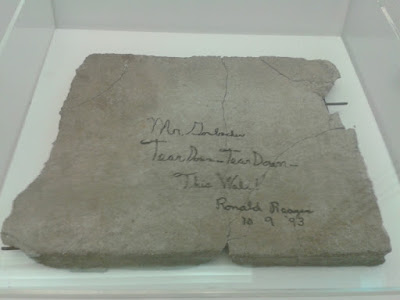 Mr. Gorbachev
Tear Down - Tear Down -
This Wall!
Ronald Reagan
10 9 93